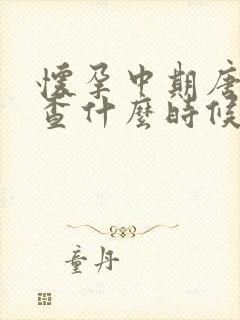 懷孕中期唐
查什麼時候
童丹